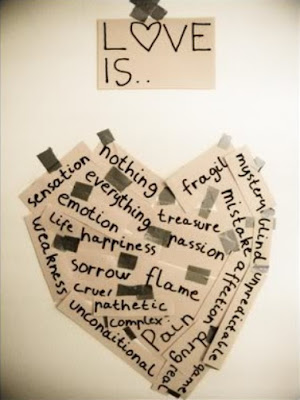 L♡VE
IS..
nothing
sensation
everything
fragil
mystery
emotion
treasure
mistake
blind
life happiness
passion
weakness
sorrow flame
affection
unpredictable
cruel
pathetic
complex
pain
unconditional
drug
game
real